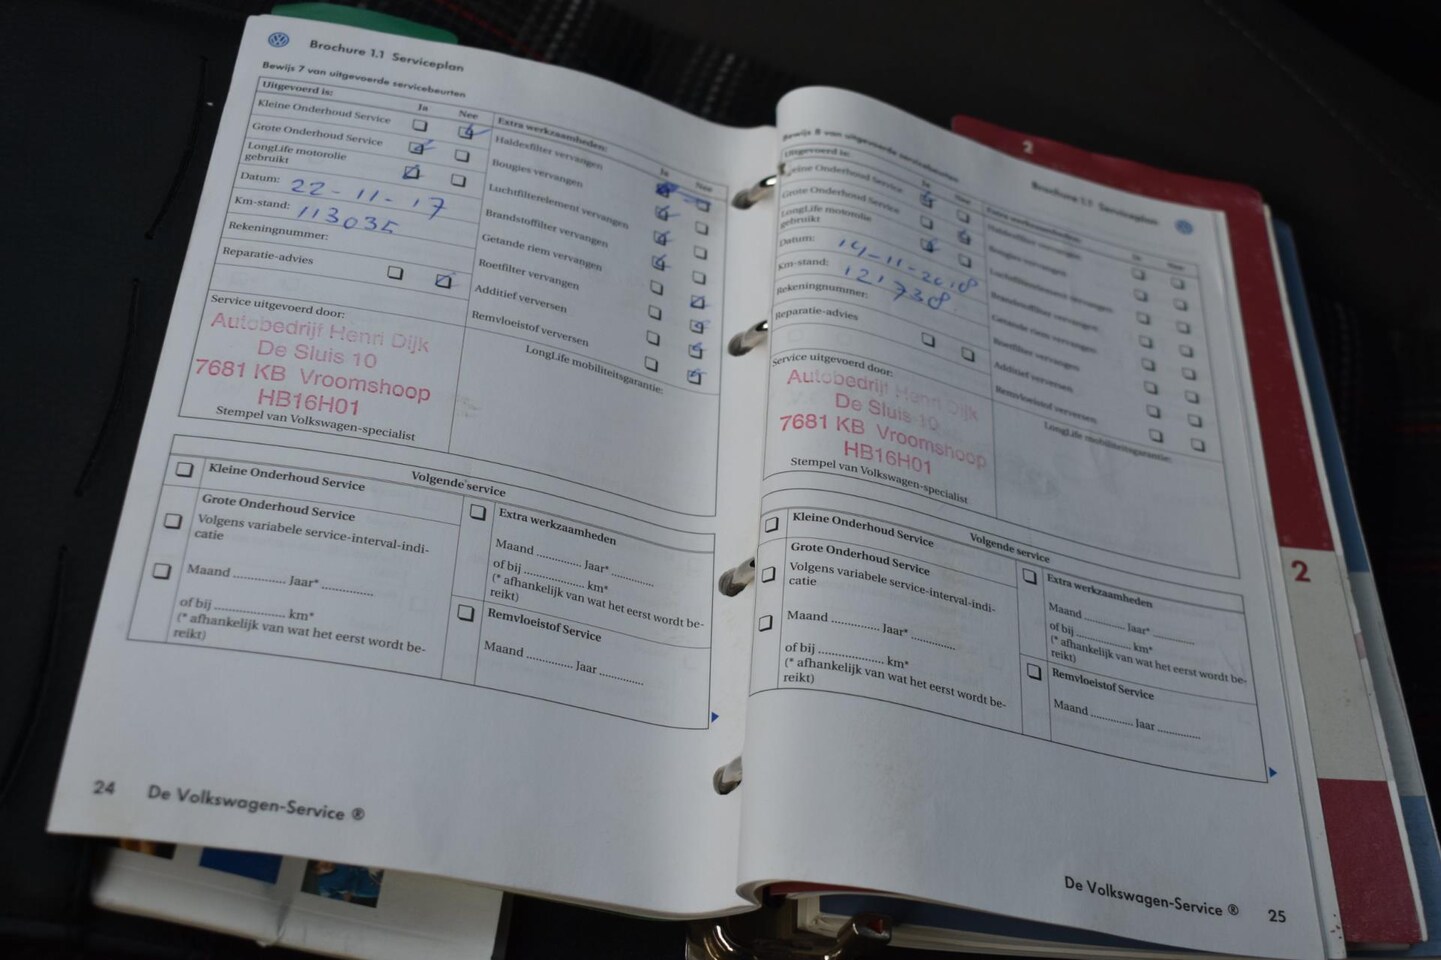 Brochure 1.1 Serviceplan
Bewijs 7 van uitgevoerde servicebeurten
Uitgevoerd is:
Ja Nee
Kleine Onderhoud Service
Grote Onderhoud Service
LongLife motorolie
gebruikt
Datum: 22-11-17
Km-stand: 113035
Rekeningnummer:
Reparatie-advies
Extra werkzaamheden:
Ja Nee
Haldexfilter vervangen
Bougies vervangen
Luchtfilterelement vervangen
Brandstoffilter vervangen
Getande riem vervangen
Roetfilter vervangen
Additief verversen
Remvloeistof verversen
Service uitgevoerd door:
Autobedrijf Henri Dijk
De Sluis 10
7681 KB Vroomshoop
HB16H01
Stempel van Volkswagen-specialist
LongLife mobiliteitsgarantie:
Volgende service
Kleine Onderhoud Service
Grote Onderhoud Service
Volgens variabele service-interval-indi-
catie
Maand ............. Jaar* .............
of bij .................. km*
(* afhankelijk van wat het eerst wordt be-
reikt)
Extra werkzaamheden
Maand ........... Jaar* ...........
of bij ............... km*
(* afhankelijk van wat het eerst wordt be-
reikt)
Remvloeistof Service
Maand ............ Jaar ...........
24 De Volkswagen-Service ®
2
Brochure 1.1 Serviceplan
Bewijs 8 van uitgevoerde servicebeurten
Uitgevoerd is:
Ja Nee
Kleine Onderhoud Service
Grote Onderhoud Service
LongLife motorolie
gebruikt
Datum: 14-11-2018
Km-stand: 121738
Rekeningnummer:
Reparatie-advies
Extra werkzaamheden:
Ja Nee
Luchtfilterelement vervangen
Brandstoffilter vervangen
Getande riem vervangen
Roetfilter vervangen
Additief verversen
Remvloeistof verversen
Service uitgevoerd door:
Autobedrijf Henri Dijk
De Sluis 10
7681 KB Vroomshoop
HB16H01
Stempel van Volkswagen-specialist
LongLife mobiliteitsgarantie:
Volgende service
Kleine Onderhoud Service
Grote Onderhoud Service
Volgens variabele service-interval-indi-
catie
Maand ............ Jaar* ...........
of bij ................. km*
(* afhankelijk van wat het eerst wordt be-
reikt)
Extra werkzaamheden
Maand ........... Jaar* ...........
of bij ............... km*
(* afhankelijk van wat het eerst wordt be-
reikt)
Remvloeistof Service
Maand ............ Jaar ...........
2
De Volkswagen-Service ® 25